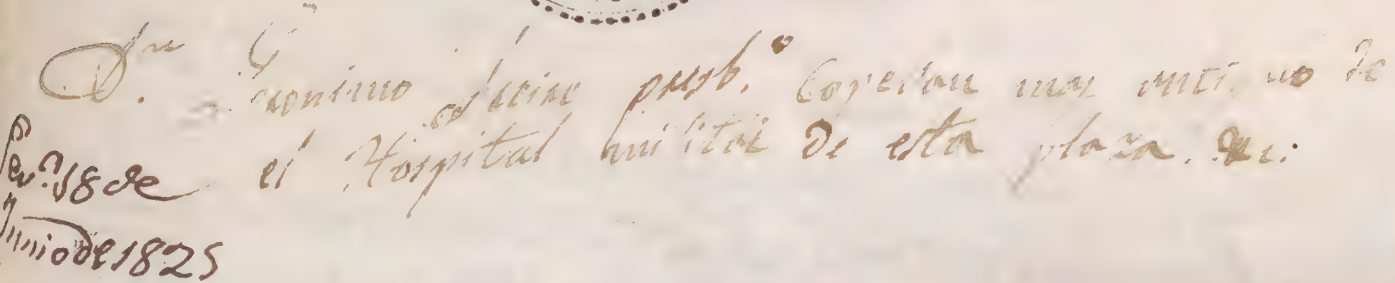 Dn. Geronimo presb.o Capellan mas antiguo de
el Hospital militar de esta plaza. &c.
18 de
Junio de 1825